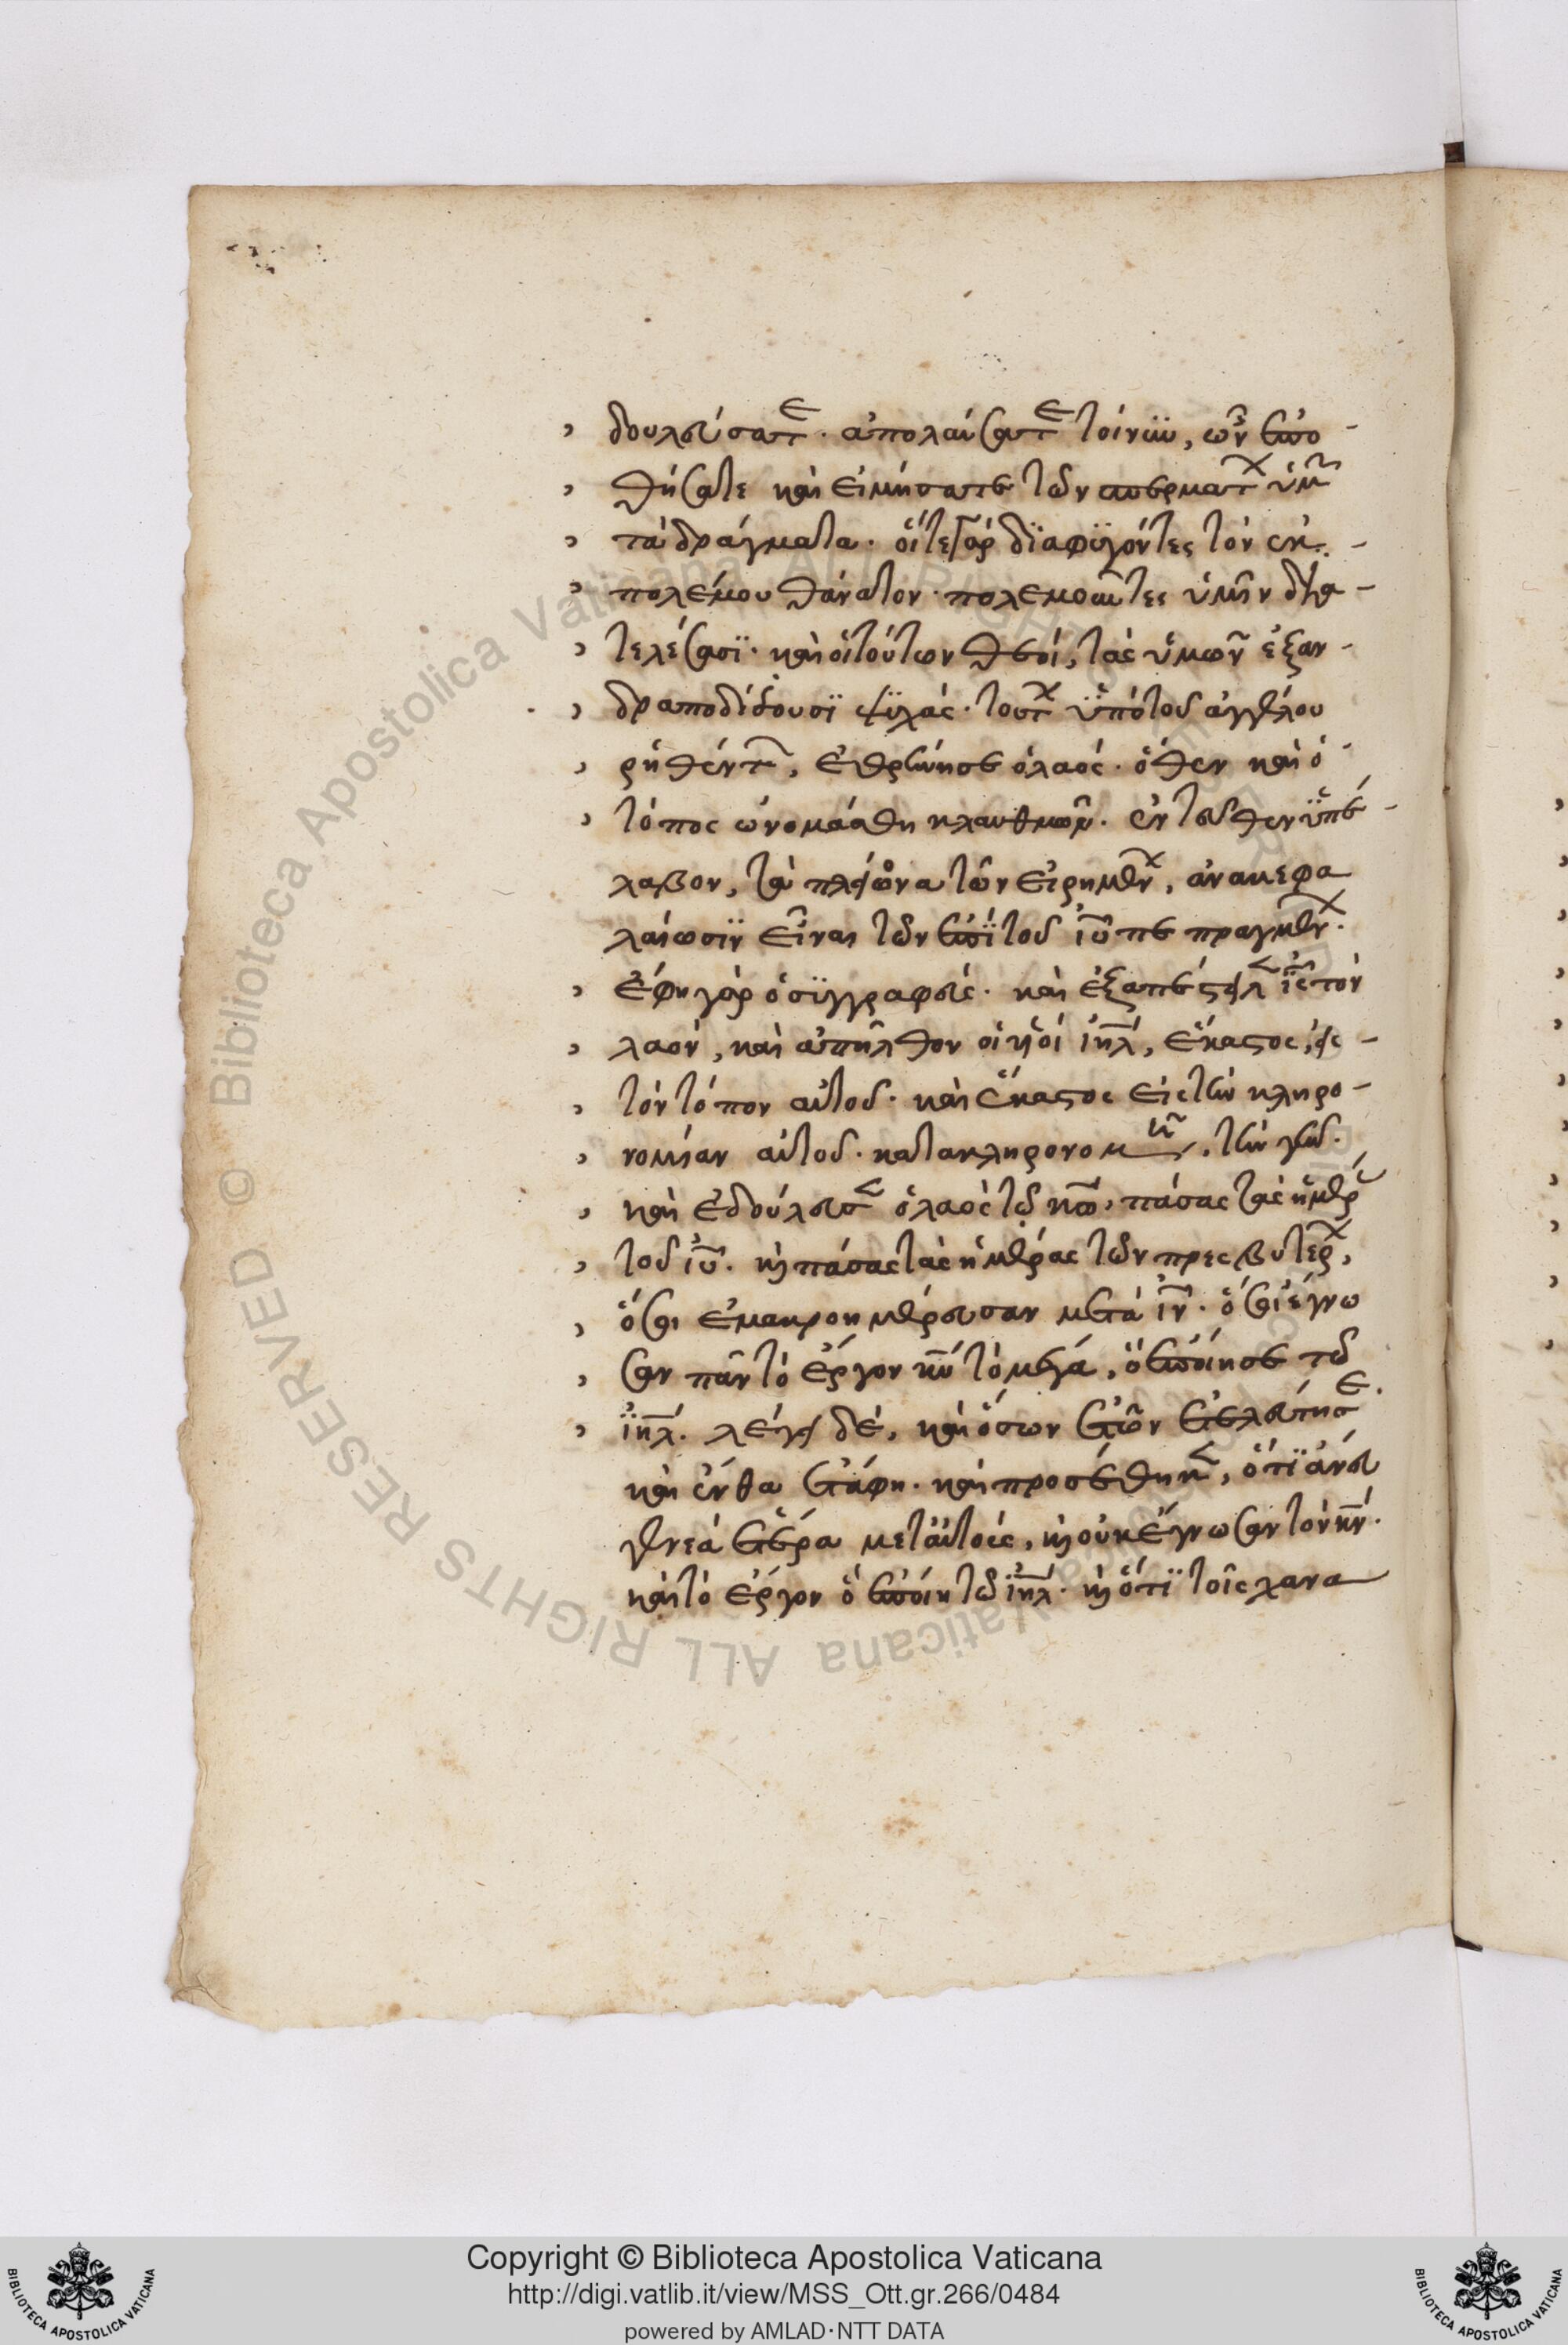 δουλεύσατε. ἀπολαύσατε τοίνυν, ὧν ἐπο
θήσατε καὶ ἀμήσατε τῶν σπερμάτων ὑμῶν
τὰ δράγματα. οἵτε γὰρ διαφυγόντες τὸν ἐκ
πολέμου θάνατον. πολεμοῦντες ὑμῖν δια
τελέσασι. καὶ οἱ τούτων θεοί, τὰς ὑμῶν ἐξαν
δραποδίζουσι ψυχάς. τούτων ὑπὸ τοῦ ἀγγέλου
ῥηθέντων, ἐθρήνησε ὁ λαός. ὅθεν καὶ ὁ
τόπος ὠνομάσθη κλαυθμών. ἐντεῦθεν ὑπέ
λαβον, τὰ πλείονα τῶν εἰρημένων, ἀνακεφα
λαίωσιν εἶναι τῶν ἐπὶ τοῦ ἰῦ πε πραγμένων.
ἔφη γὰρ ὁ συγγραφεύς. καὶ ἐξαπέστειλεν ἰς τὸν
λαόν, καὶ ἀπῆλθον οἱ υἱοὶ ἰηλ, ἕκαστος, εἰς
τὸν τόπον αὐτοῦ. καὶ ἕκαστος εἰς τὴν κληρο
νομίαν αὐτοῦ. κατακληρονομῆσαι, τὴν γῆν.
καὶ ἐδούλευσεν ὁ λαὸς τῷ κω, πάσας τὰς ἡμέρας
τοῦ ἰῦ. καὶ πάσας τὰς ἡμέρας τῶν πρεσβυτέρων,
ὅσοι ἐμακροημέρευσαν μετὰ ἰν. ὅσοι ἔγνω
σαν πᾶν τὸ ἔργον κυ τὸ μέγα, ὃ ἐποίησε τῷ
ἰηλ. λέγει δέ, καὶ ὅσων ἐτῶν ἐτελεύτησε.
καὶ ἔνθα ἐτάφη. καὶ προσέθηκεν, ὅτι ἀνέστη
γενεὰ ἑτέρα μετ αὐτούς, καὶ οὐκ ἔγνωσαν τὸν κν.
καὶ τὸ ἔργον ὃ ἐποίη τῷ ἰηλ. καὶ ὅτι τοῖς χανα
Copyright © Biblioteca Apostolica Vaticana
http://digi.vatlib.it/view/MSS_Ott.gr.266/0484
powered by AMLAD·NTT DATA